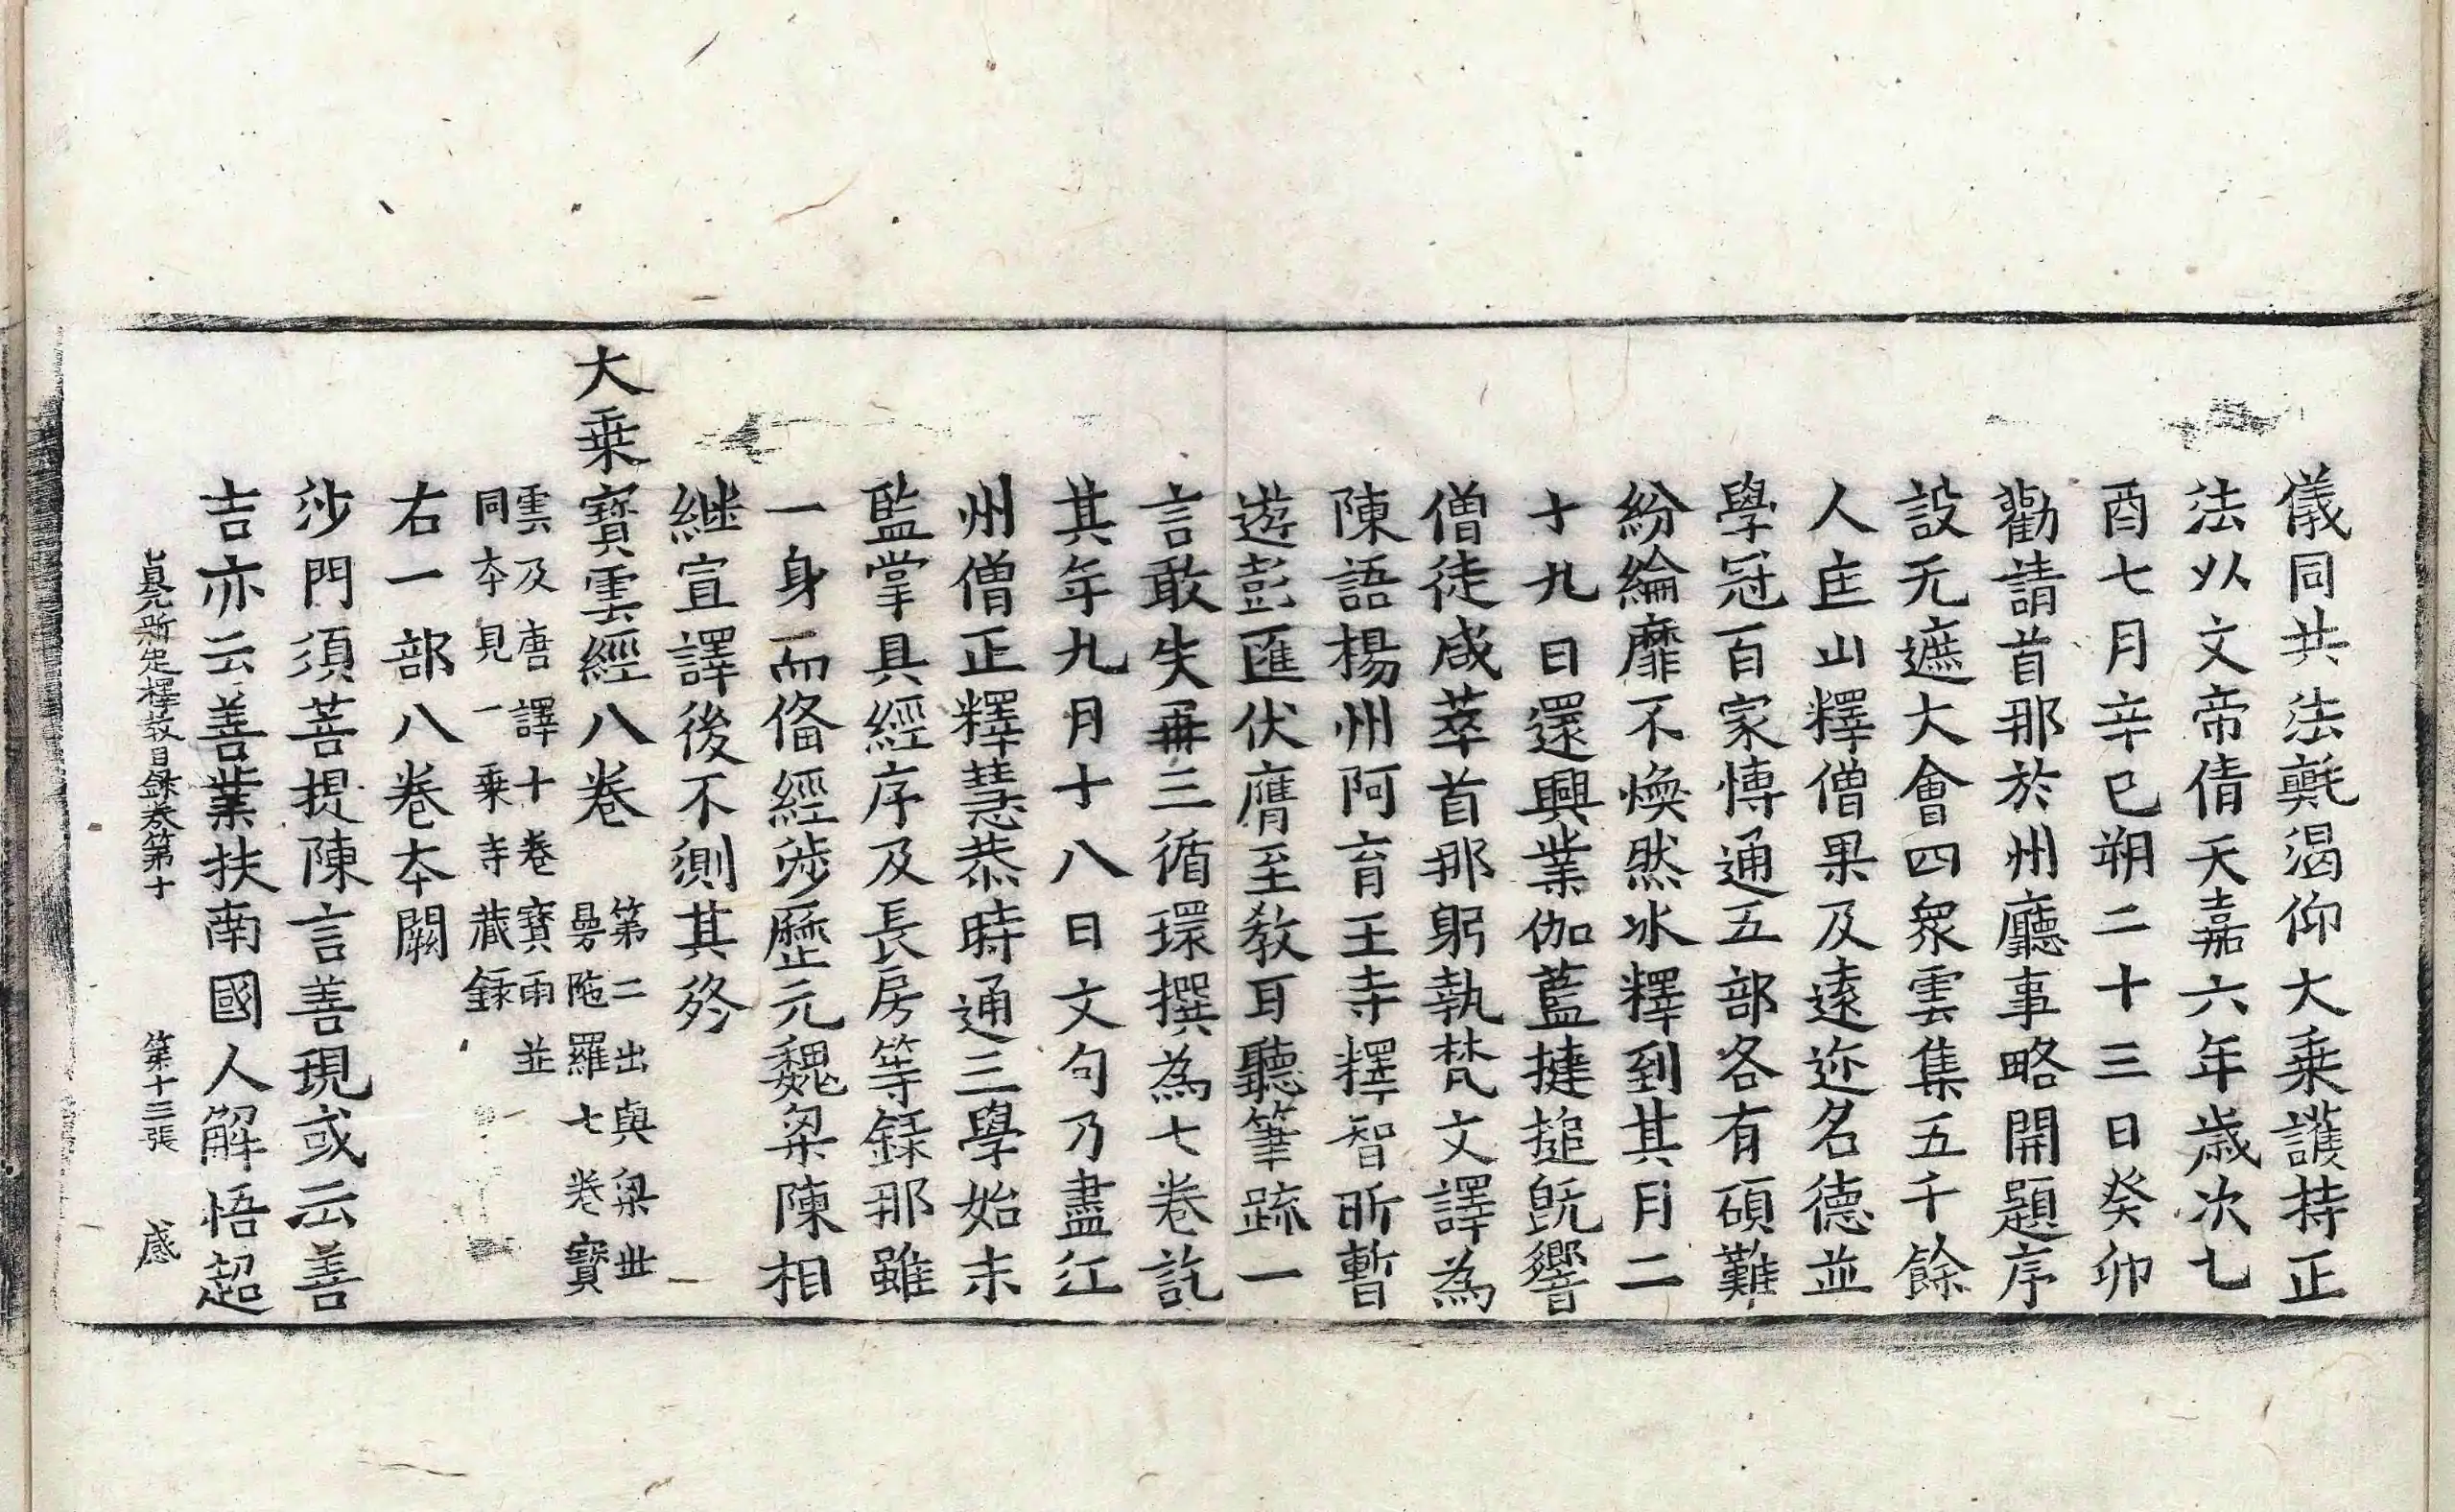 儀同共法㲲渴仰大乗護持正
法以文帝倩天嘉六年歳次乚
酉七月辛巳朔二十三日癸卯
勸請首那於州廳事略開題序
設无遮大會四衆雲集五千餘
人匡山釋僧果及遠迩名德並
學冠百家愽通五部各有碩難
紛綸靡不煥然氷釋到其月二
十九日還興業伽藍揵搥旣響
僧徒咸萃首那躬執梵文譯為
陳語楊州阿育王寺釋智昕暫
遊彭匯伏膺至教耳聽筆䟽一
言敢失再三循環撰為七卷訖
其年九月十八日文句乃盡江
州僧正釋慧恭時通三學始末
監掌具經序及長房等録那雖
一身而俻經涉歷元魏梁陳相
継宣譯後不測其終
大乗寳雲經八卷 第二出與梁世
曼陁羅七卷寳
雲及唐譯十卷寳雨並
同夲見一乗寺藏録
右一部八卷夲闕
沙門須菩提陳言善現或云善
吉亦云善業扶南國人解悟超
貞元新定釋教目録卷第十 第十三張 感